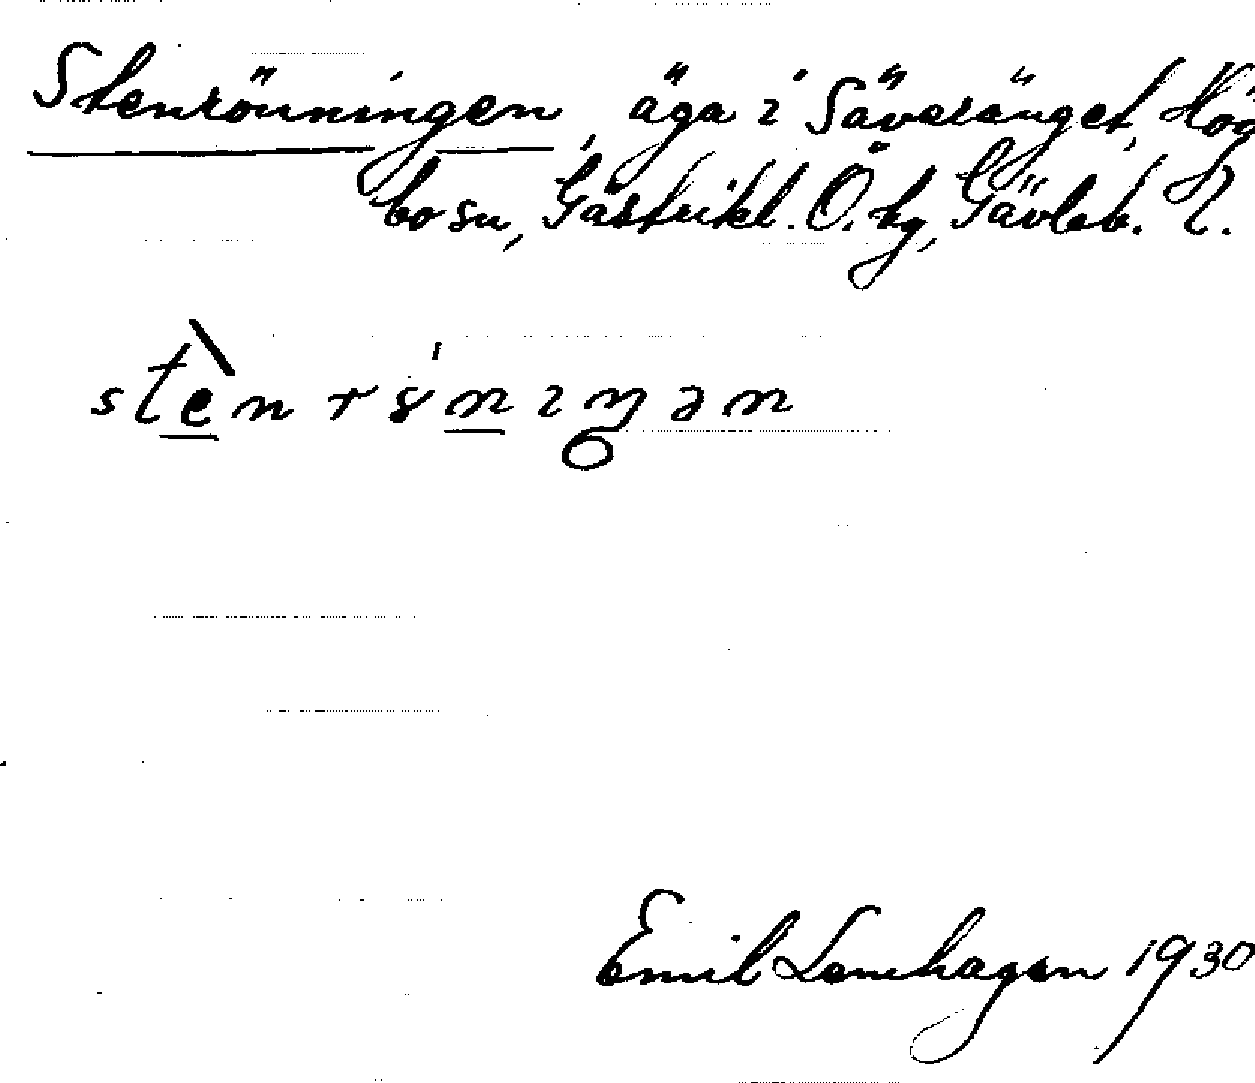 Stenrönningen, äga i Säveränget, Hög
bo sn, Gästrikl. Ö. tg, Gävleb. L.
stènrönıŋən
Emil Lenhagen 1930